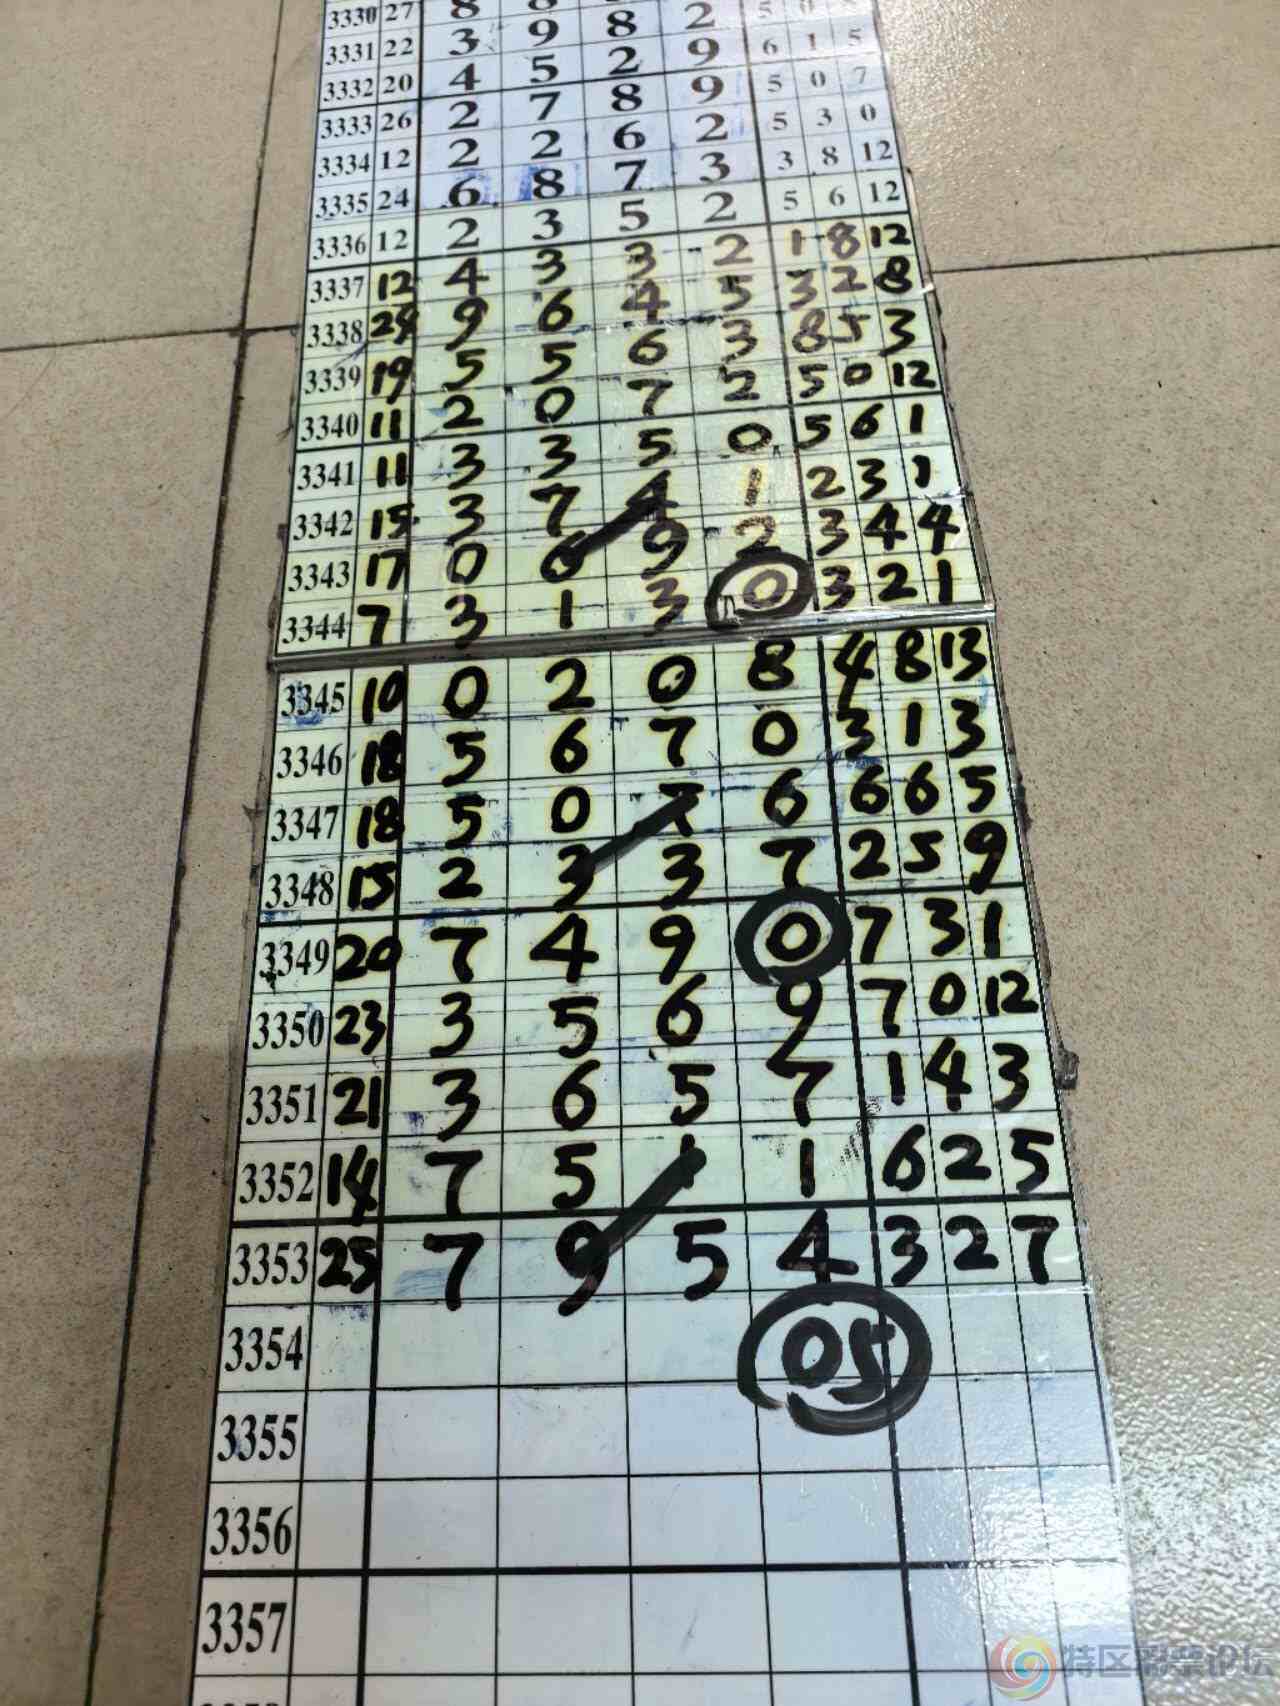 3330 27 8 8 2 5 0
3331 22 3 9 8 2 6 1 5
3332 20 4 5 2 9 5 0 7
3333 26 2 7 8 9 5 3 0
3334 12 2 2 6 2 3 8 12
3335 24 6 8 7 3 5 6 12
3336 12 2 3 5 2 1 8 12
3337 12 4 3 3 2 3 2 8
3338 24 9 6 4 5 8 5 3
3339 19 5 5 6 3 5 0 12
3340 11 2 0 7 2 5 6 1
3341 11 3 3 5 0 2 3 1
3342 15 3 7 4 1 3 4 4
3343 17 0 6 9 2 3 2 1
3344 7 3 1 3 0
3345 10 0 2 0 8 4 8 13
3346 18 5 6 7 0 3 1 3
3347 18 5 0 7 6 6 6 5
3348 15 2 3 3 7 2 5 9
3349 20 7 4 9 0 7 3 1
3350 23 3 5 6 9 7 0 12
3351 21 3 6 5 7 1 4 3
3352 14 7 5 1 1 6 2 5
3353 25 7 9 5 4 3 2 7
3354 05
3355
3356
3357
特区彩票论坛